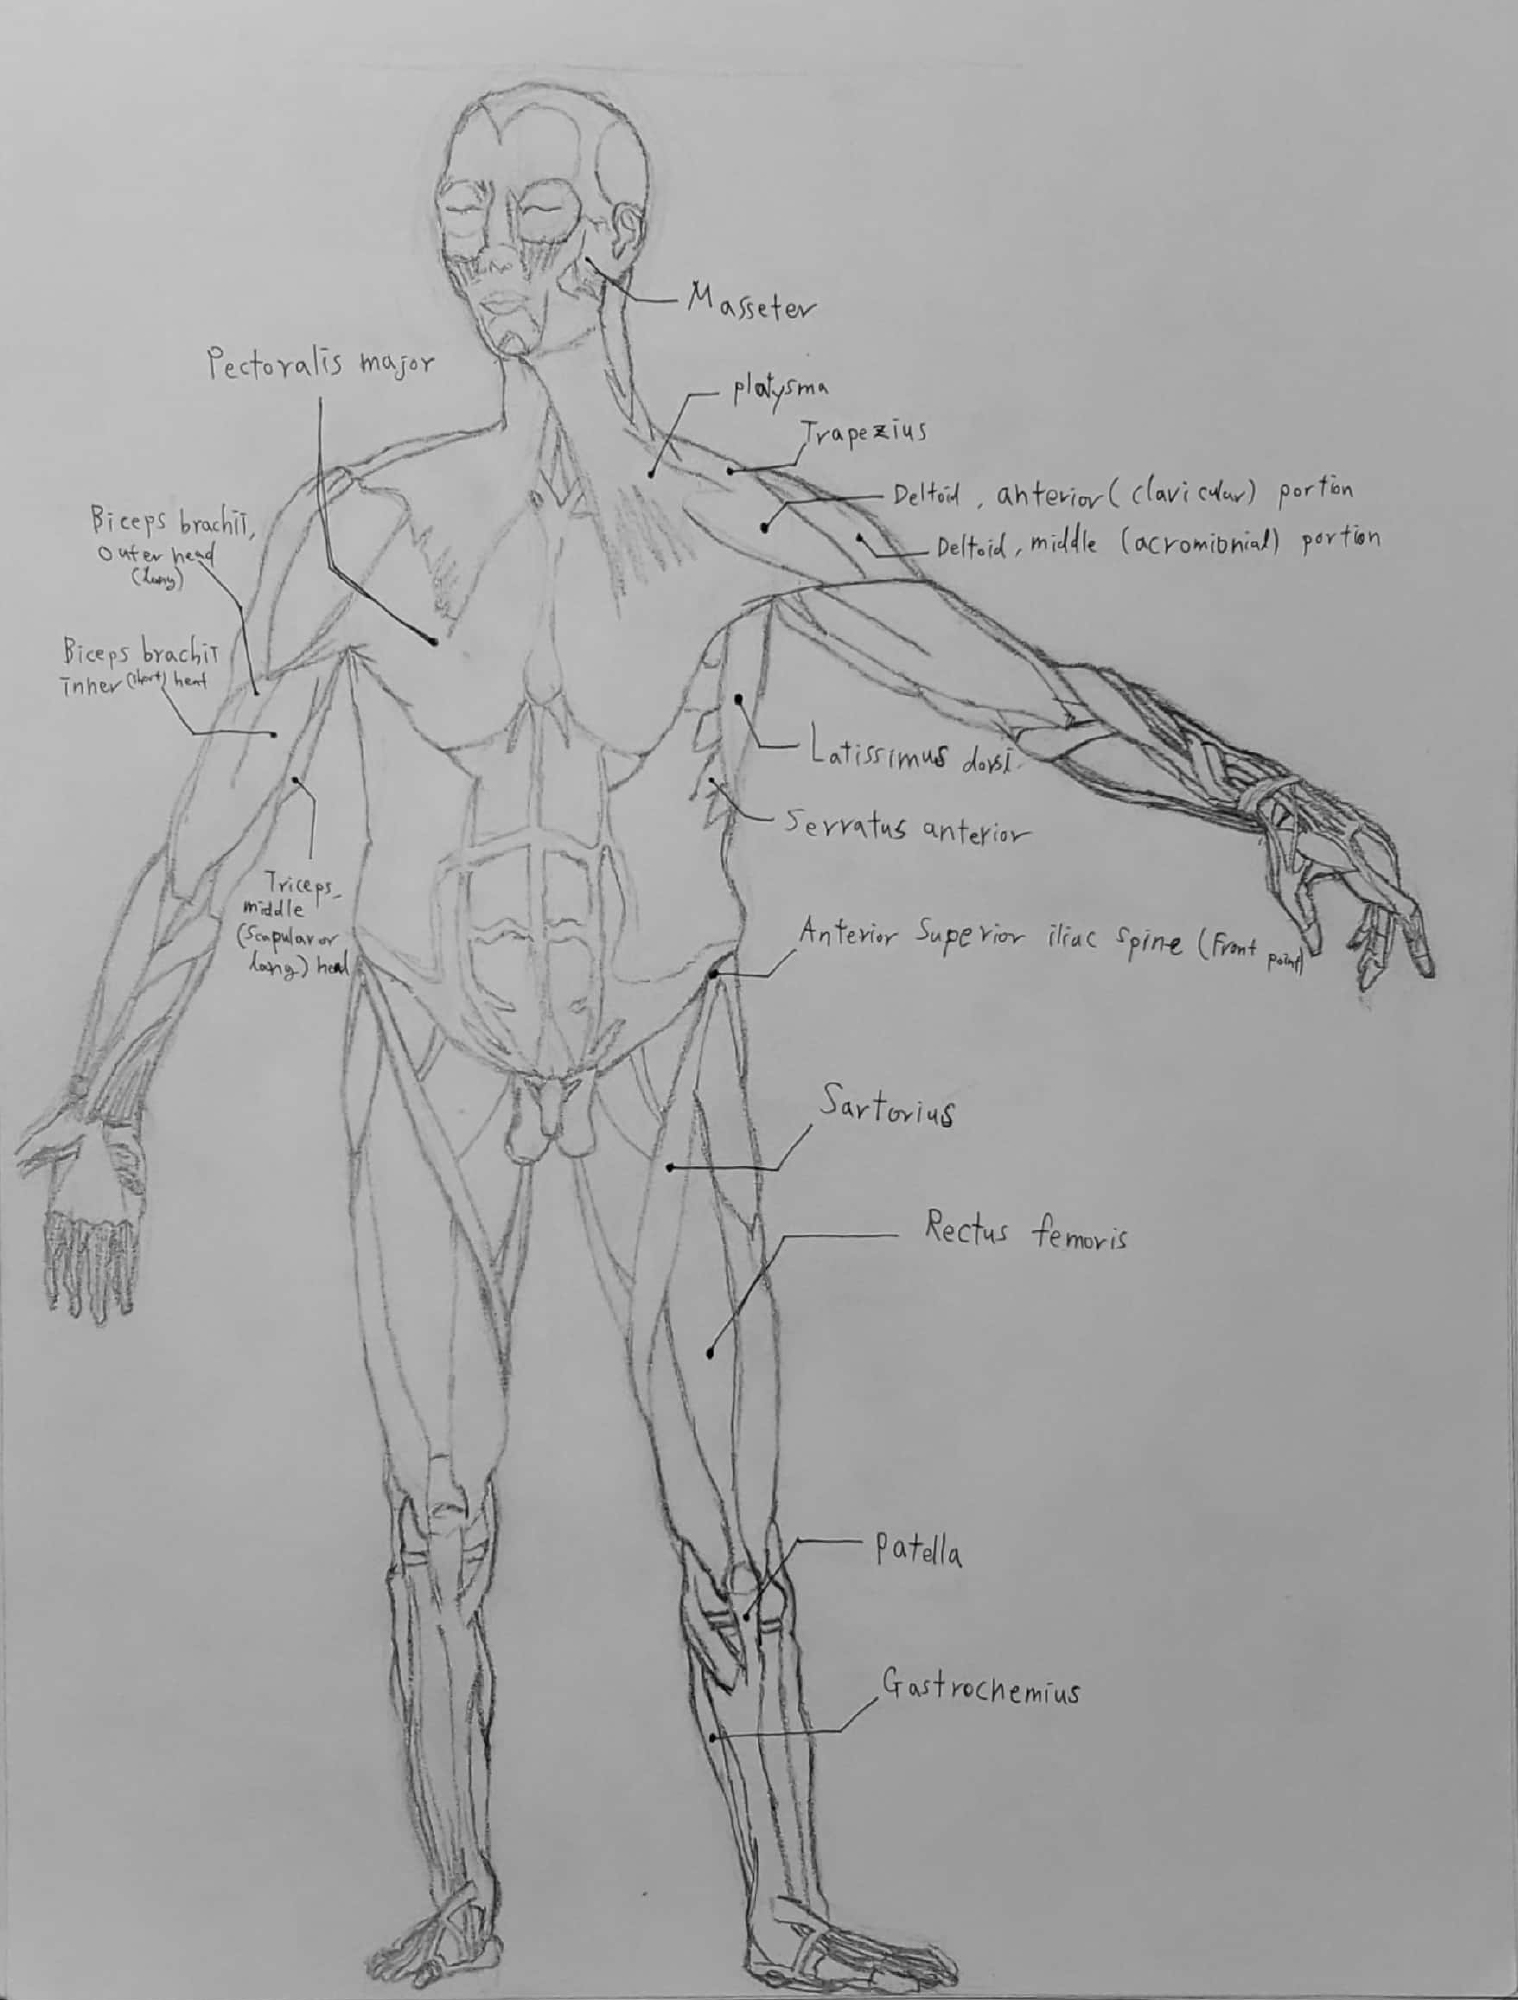 Masseter
Pectoralis major
platysma
Trapezius
Deltoid, anterior (clavicular) portion
Biceps brachii,
outer head
(long)
Deltoid, middle (acromibnial) portion
Biceps brachii
inner (short) head
Latissimus dorsi
Serratus anterior
Triceps,
middle
(Scapular or
long) head
Anterior Superior iliac spine (Front point)
Sartorius
Rectus femoris
patella
Gastrochemius